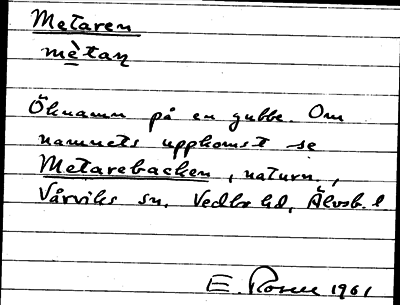 Metaren
mètaṇ
Öknamn på en gubbe. Om
namnets uppkomst se
Metarebacken, naturn.,
Vårviks sn. Vedbo hd, Älvsb. l
E. Rosell 1961